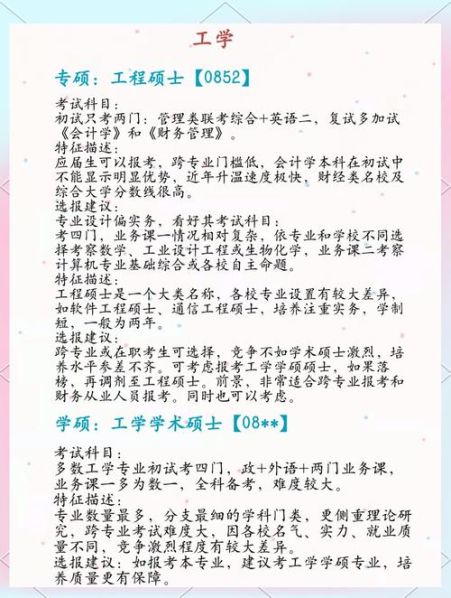 工学
专硕：工程硕士【0852】
考试科目：
初试只考两门：管理类联考综合+英语二，复试多加试
《会计学》和《财务管理》。
特征描述：
应届生可以报考，跨专业门槛低，会计学本科在初试中
不能显示明显优势，近年升温速度极快，财经类名校及
综合大学分数线很高。
选报建议：
专业设计偏实务，看好其考试科目：
考四门，业务课一情况相对复杂，依专业和学校不同选
择考察数学、工业设计工程或生物化学，业务课二考察
计算机专业基础综合或各校自主命题。
特征描述：
工程硕士是一个大类名称，各校专业设置有较大差异，
如软件工程硕士、通信工程硕士，培养注重实务，学制
短，一般为两年。
选报建议：
跨专业或在职考生可选择，竞争不如学术硕士激烈，培
养水平参差不齐。可考虑报考工学学硕硕士，如果落
榜，再调剂至工程硕士。前景，非常适合跨专业报考和
财务从业人员报考。同时也可以考虑。
学硕：工学学术硕士【08**】
考试科目：
多数工学专业初试考四门，政+外语+两门业务课，
业务课一多为数一，全科备考，难度较大。
特征描述：
专业数量最多，分支最细的学科门类，更侧重理论研
究，跨专业考试难度大，因各校名气、实力、就业质
量不同，竞争激烈程度有较大差异。
选报建议：如报考本专业，建议考工学学硕专业，培
养质量更有保障。